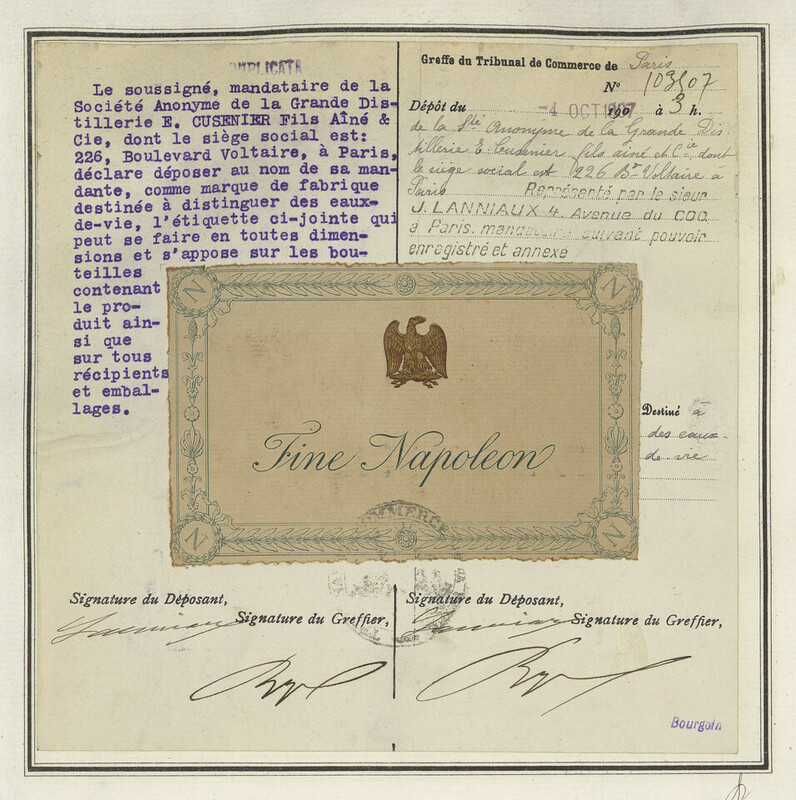 DUPLICATA
Le soussigné, mandataire de la
Société Anonyme de la Grande Dis-
tillerie E. CUSENIER Fils Aîné &
Cie, dont le siège social est:
226, Boulevard Voltaire, à Paris,
déclare déposer au nom de sa man-
dante, comme marque de fabrique
destinée à distinguer des eaux-
de-vie, l'étiquette ci-jointe qui
peut se faire en toutes dimen-
sions et s'appose sur les bou-
teilles
contenant
le pro-
duit ain-
si que
sur tous
récipients
et embal-
lages.
Greffe du Tribunal de Commerce de Paris
N° 103507
Dépôt du -4 OCT 1907 à 3 h.
de la Sté Anonyme de la Grande Dis-
tillerie E. Cusenier fils aîné et Cie, dont
le siège social est 226 Bd Voltaire à
Paris Représenté par le sieur
J. LANNIAUX 4, Avenue du COQ,
à Paris, mandataire suivant pouvoir
enregistré et annexe
N N
Fine Napoleon
N N
COMMERCE
Destiné à
des eaux-
de-vie
Signature du Déposant,
Signature du Greffier,
Signature du Déposant,
Signature du Greffier,
Bourgoin